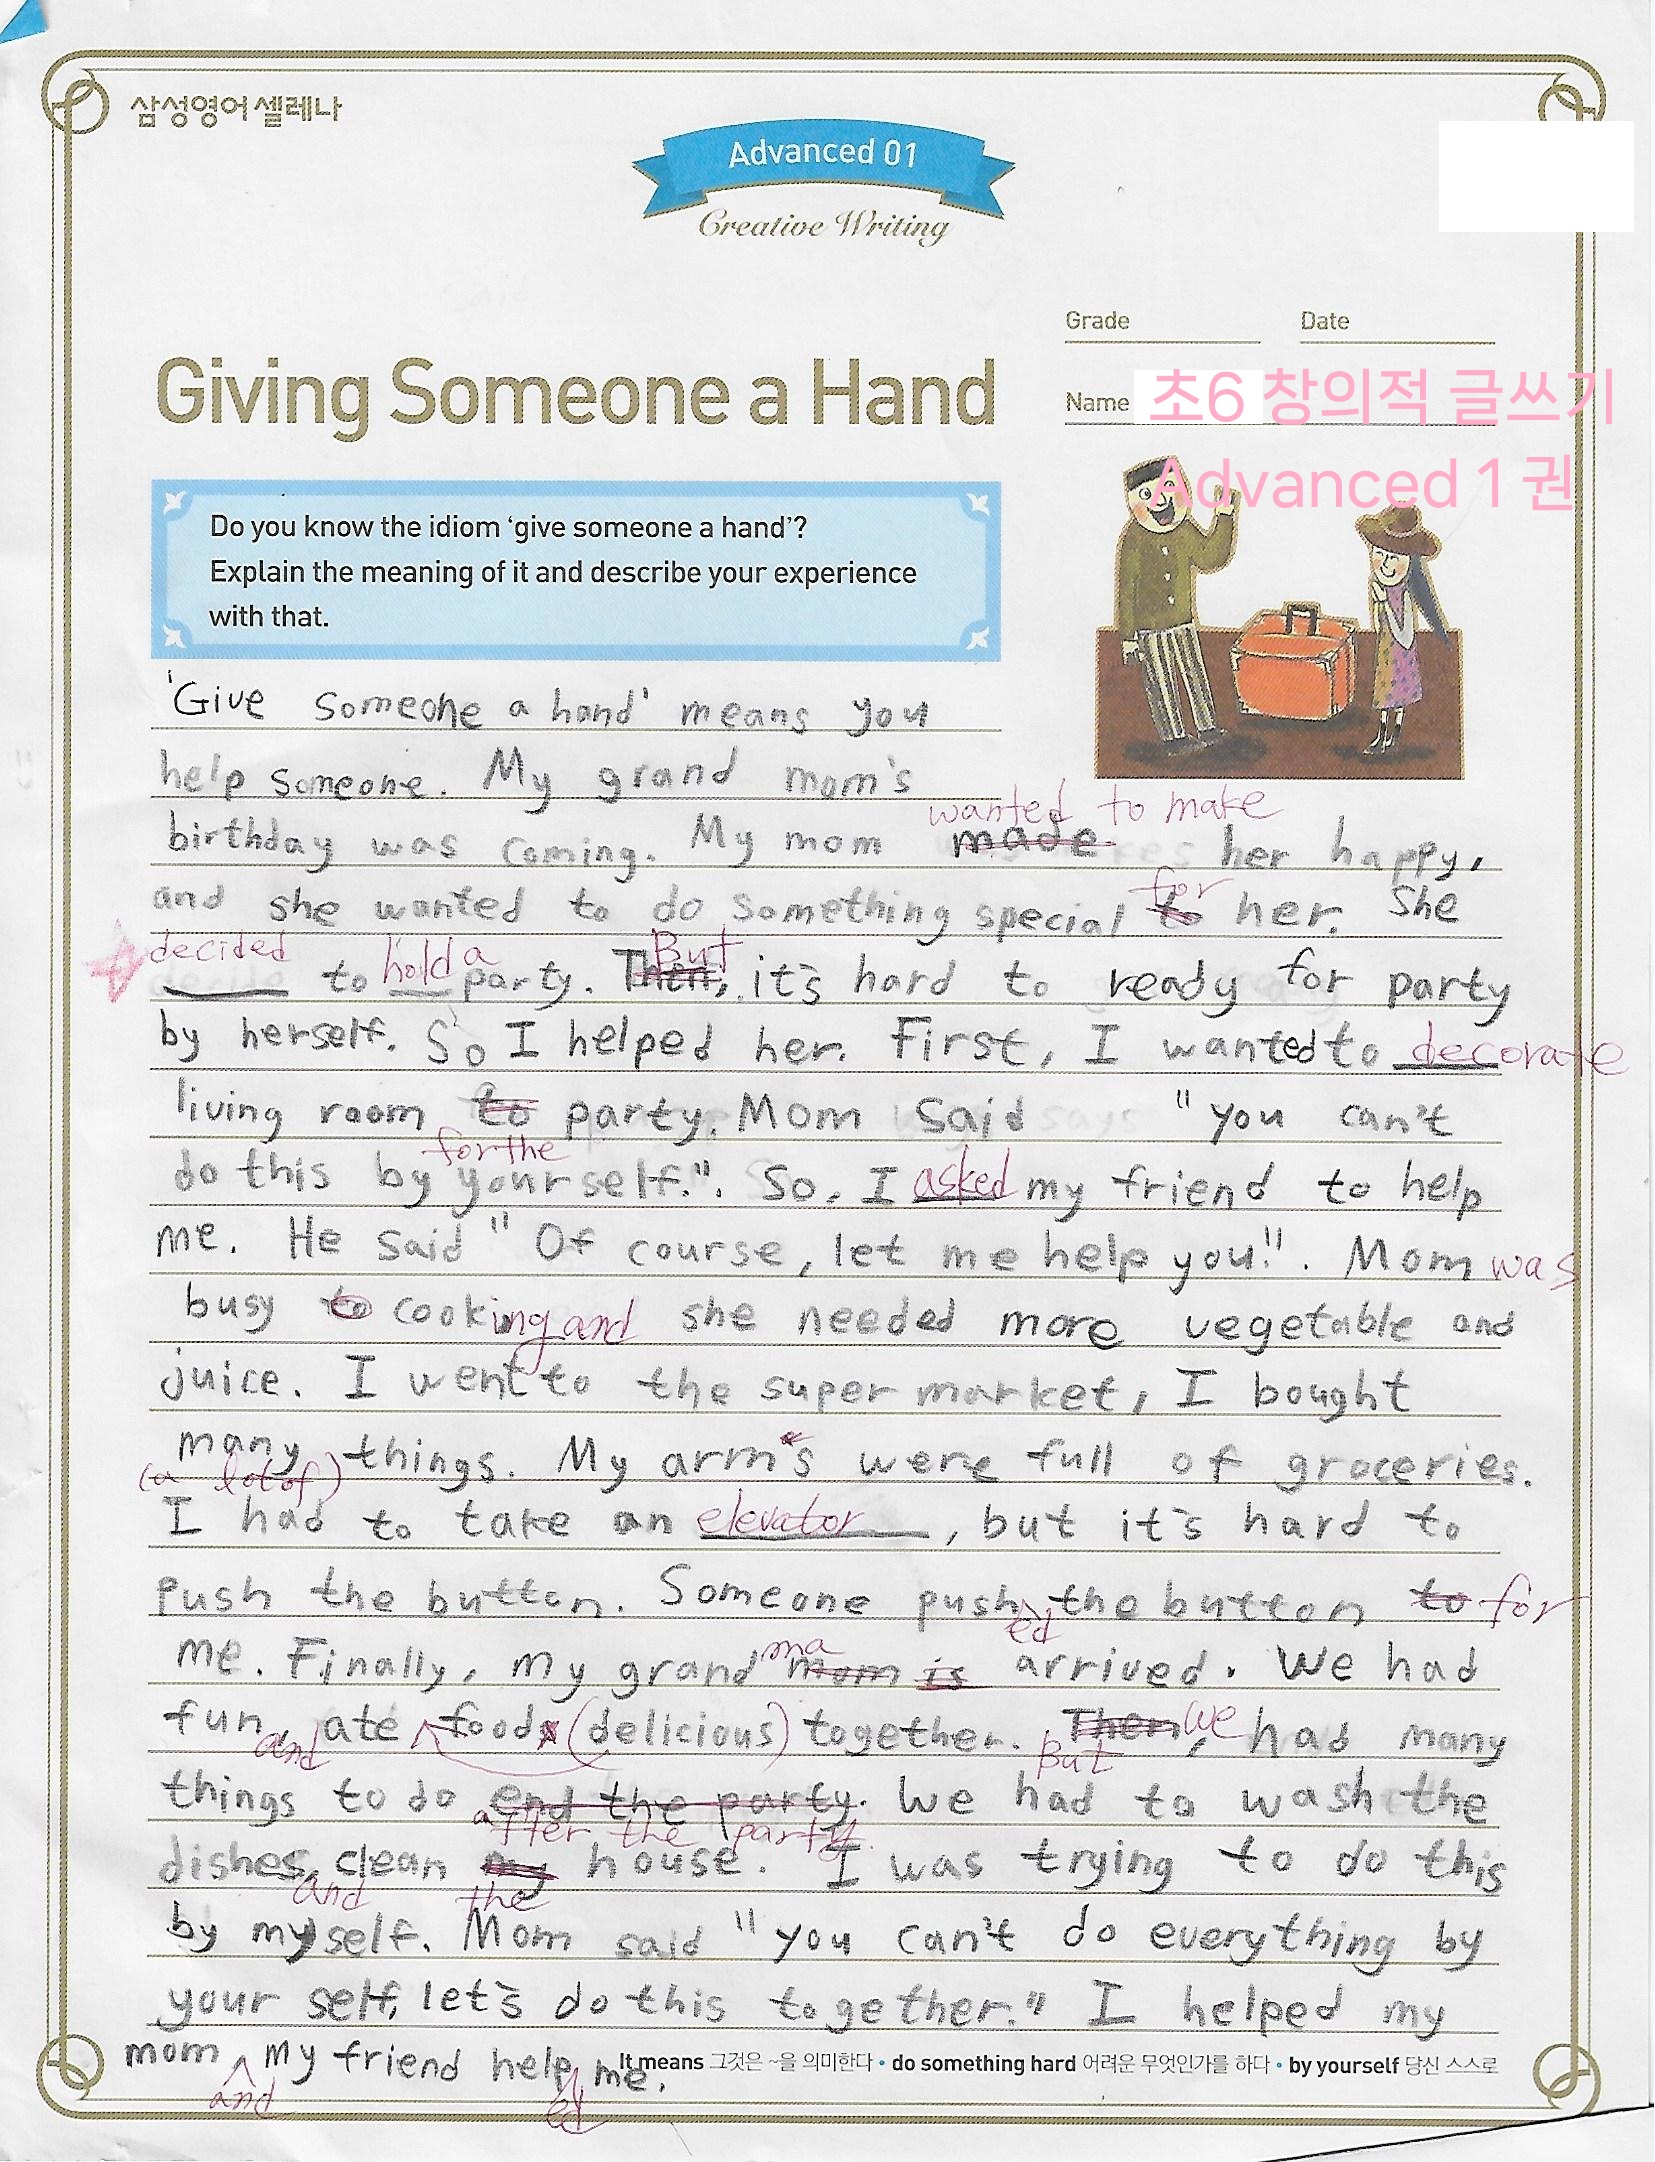 삼성영어 셀레나
Advanced 01
Creative Writing
Grade Date
Giving Someone a Hand
Name 초6 창의적 글쓰기
Advanced 1 권
Do you know the idiom ‘give someone a hand’?
Explain the meaning of it and describe your experience
with that.
'Give someone a hand' means you
help someone. My grand mom's
wanted to make
birthday was coming. My mom made her happy,
for
and she wanted to do something special to her. She
decided hold a But
to party. Then, it's hard to ready for party
by herself. So I helped her. First, I wanted to decorate
living room to party. Mom said "you can't
for the
do this by yourself.". So, I asked my friend to help
me. He said "Of course, let me help you!". Mom was
busy to cooking and she needed more vegetable and
juice. I went to the super market, I bought
many things. My arm's were full of groceries.
(a lot of)
I had to take an elevator, but it's hard to
push the button. Someone push the button to for
ed
me. Finally, my grand mom is arrived. We had
ma
fun, ate foods (delicious) together. Then, we had many
and But
things to do end the party. We had to wash the
after the party.
dishes, clean my house. I was trying to do this
and the
by myself. Mom said "you can't do everything by
your self, let's do this together." I helped my
mom, my friend help me.
and ed
It means 그것은 ~을 의미한다 • do something hard 어려운 무엇인가를 하다 • by yourself 당신 스스로